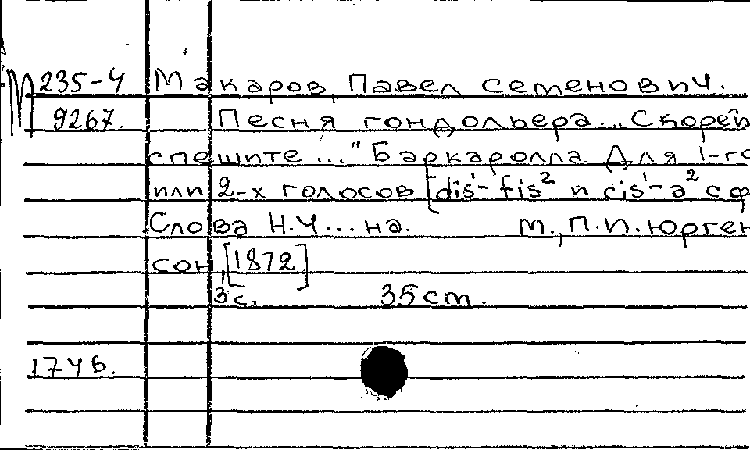 М 235-4 Макаров, Павел Семенович.
9267. Песня гондольера... "Скорей
спешите..." Баркаролла для 1-го
или 2-х голосов [dis¹-fis² и cis¹-a² с ф
Слова Н.Ч... на. М., П.И. Юрген
сон, [1872]
3 с. 35 cm.
1746.